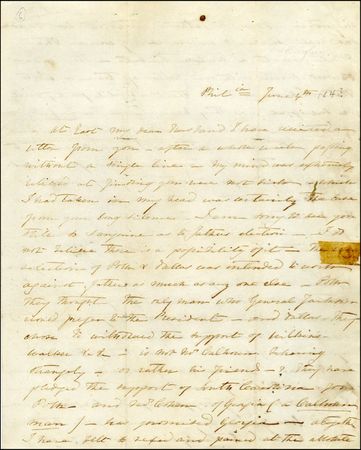 Phila June 4th 184
At last my dear Husband I have received a
letter from you – after a whole week passing
without a single line – My mind was
relieved at finding you were not sick – which
I had taken in my head was certainly the case
from your long silence – I am sorry to see you
to sanguine as to fathers election – I do
not believe there is a possibility of it – The
selection of Polk & Dallas was intended to work
against fathers as much as any one else –
they thought the only man who General Jackson
would prefer to the President – and Dallas they
chose to withdraw the support of Wilkins
Walker &c &c – is not Mr Calhoun behaving
strangely – or rather his friends –? They have
pledged the support of South Carolina for
Polk and Mr of Georgia (a Calhoun
man) – has promised Georgia – altogether
I have felt so vexed and pained at the